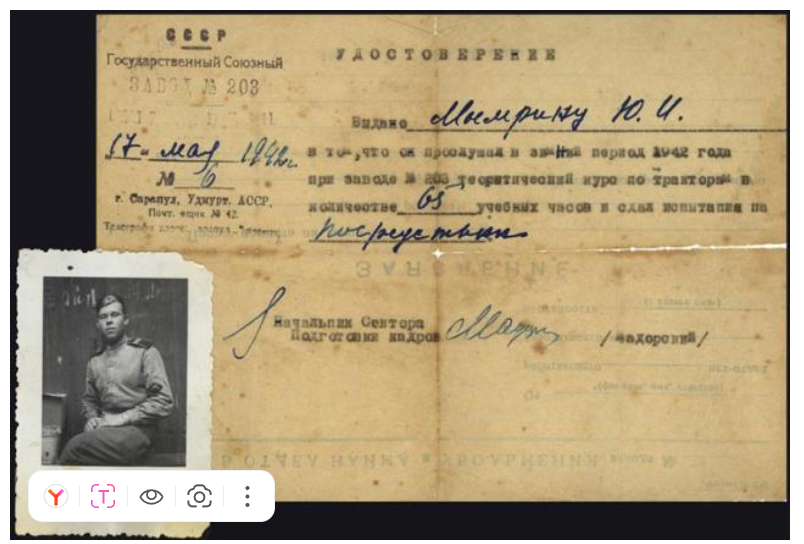 СССР
Государственный Союзный
ЗАВОД № 203
17 мая 1942 г.
№ 6
г. Сарапул, Удмурт. АССР.
Почт. ящик № 42.
УДОСТОВЕРЕНИЕ
Выдано Мымрину Ю. И.
в том, что он прослушал в зимний период 1942 года
при заводе № 203 теоритический курс по тракторам в
количестве 65 учебных часов и сдал испытания на
посредственно
Начальник Сектора
Подготовки кадров /Задорский/
ЗАЯВЛЕНИЕ
В ОТДЕЛ НАЙМА и УВОЛЬНЕНИЯ